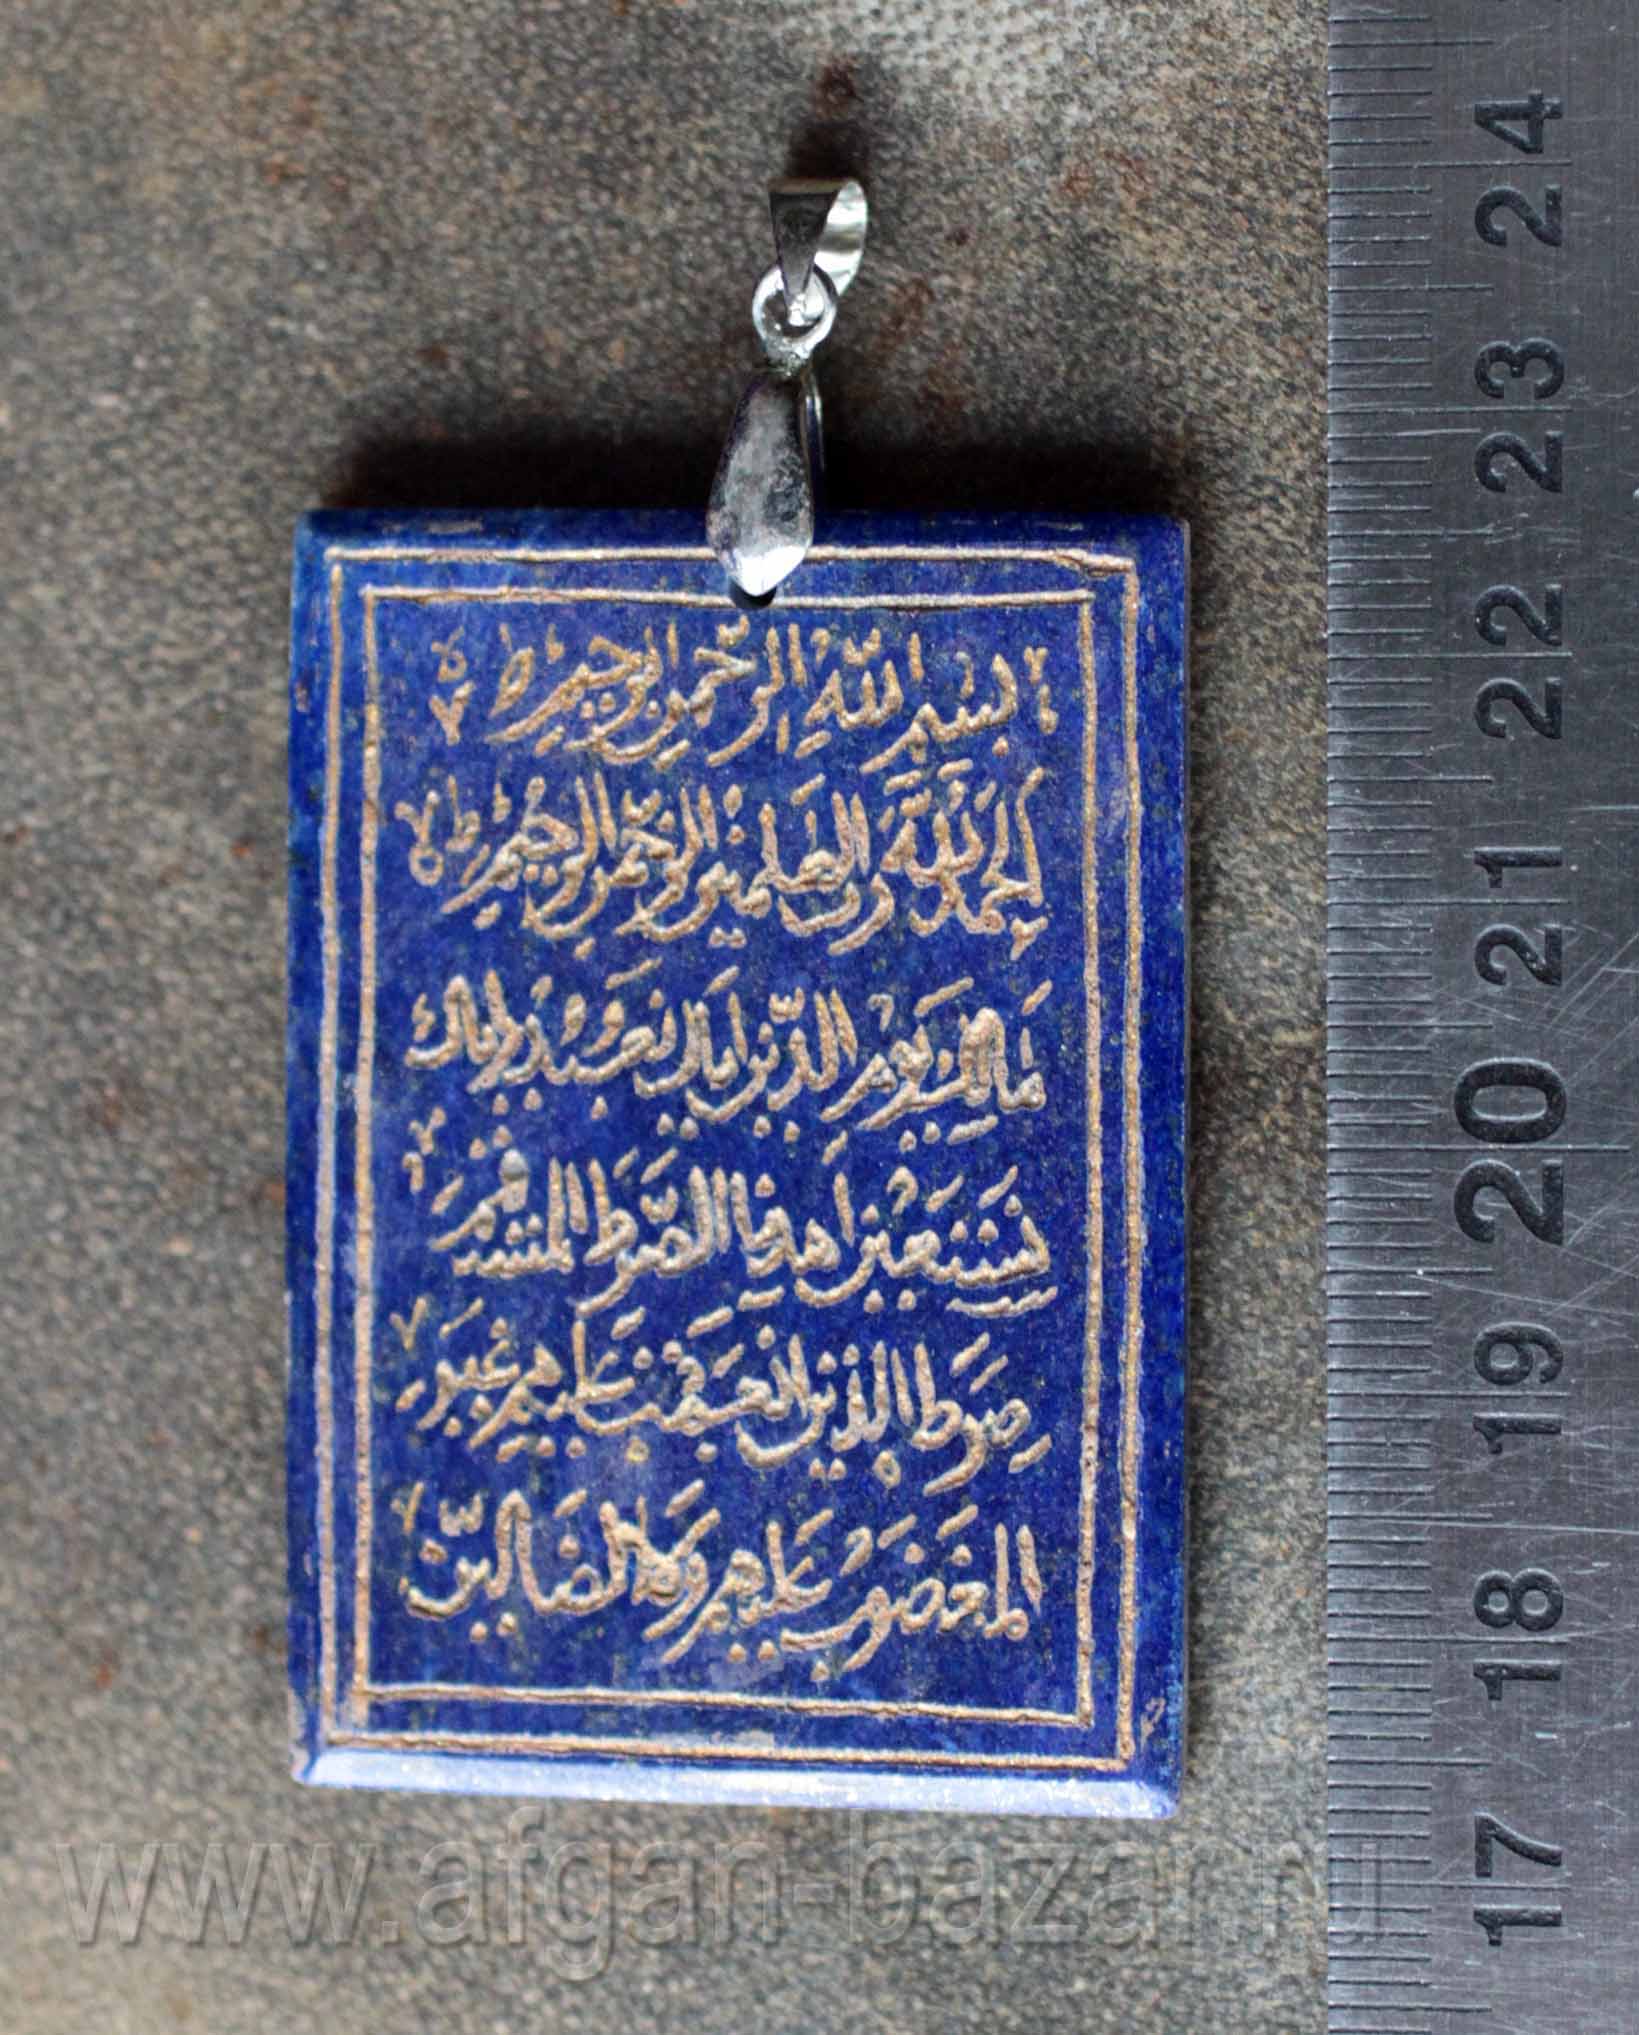 بسم الله الرحمن الرحيم ط
الحمد لله رب العلمين الرحمن الرحيم ط لا
مالك يوم الدين اياك نعبد و اياك
نستعين اهدنا الصرط المستقيم
صرط الذين انعمت عليهم غير
المغضوب عليهم ولا الضالين
24
23
22
21
20
19
18
17
www.afgan-bazar.ru